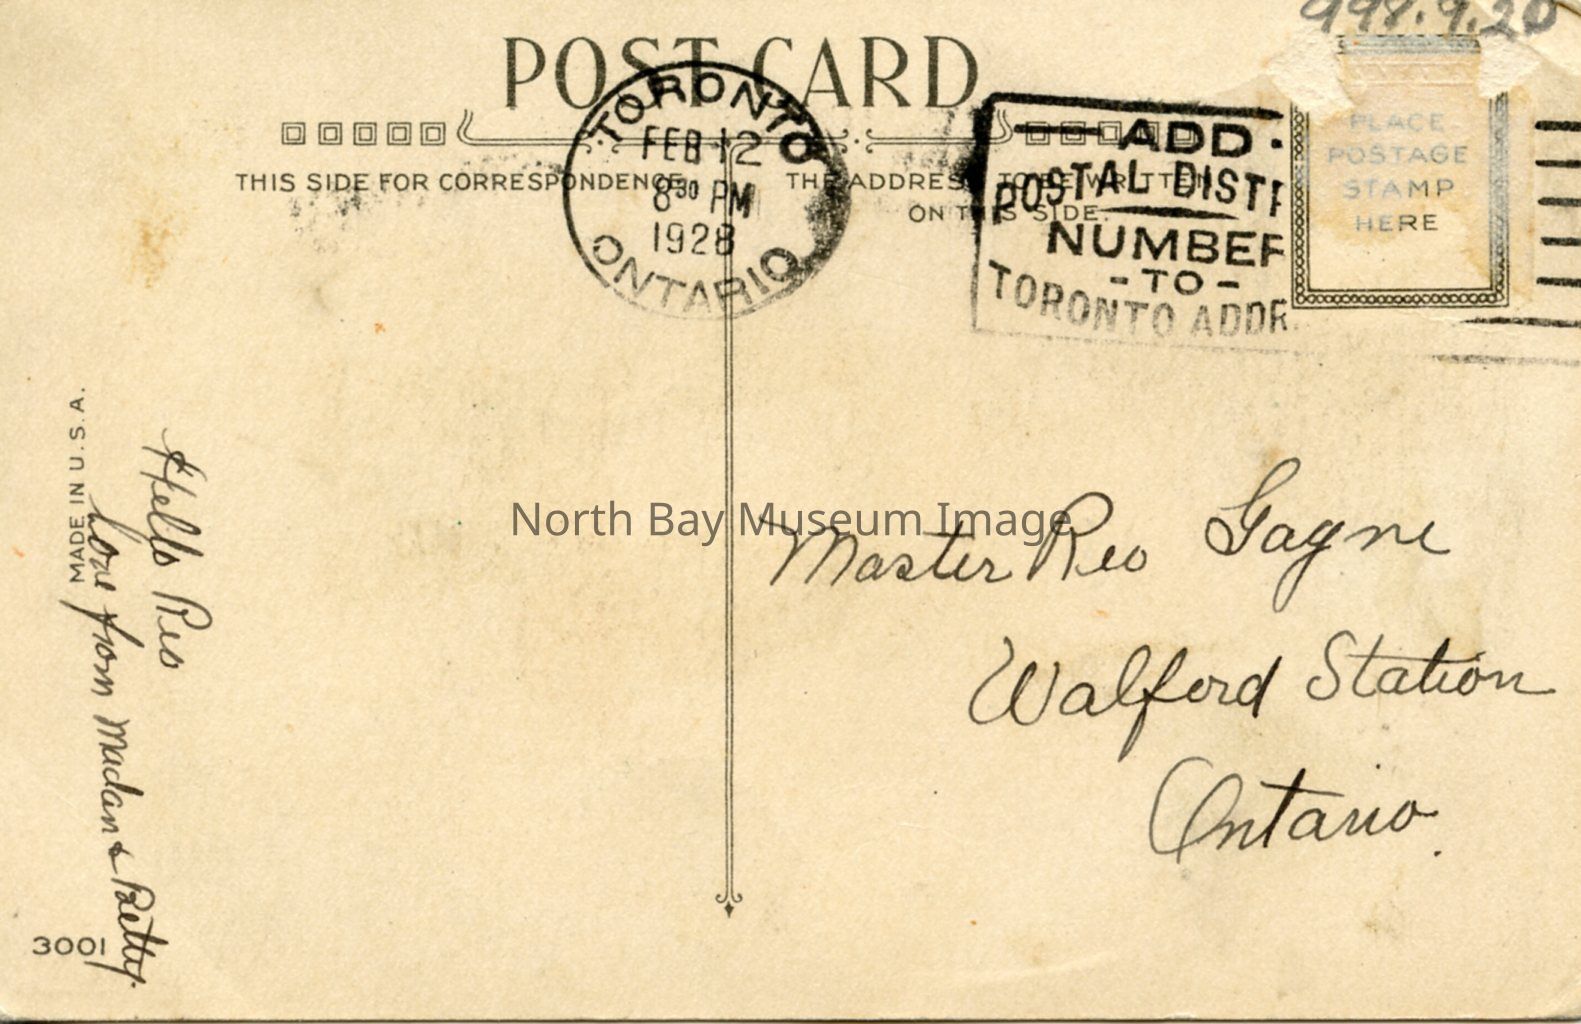 998.9.20
POST CARD
TORONTO
FEB 12
8 30 PM
1928
ONTARIO
ADD
POSTAL DISTR
NUMBER
- TO -
TORONTO ADDR
PLACE
POSTAGE
STAMP
HERE
THIS SIDE FOR CORRESPONDENCE
THE ADDRESS TO BE WRITTEN
ON THIS SIDE
MADE IN U.S.A.
Hello Reo
Love from Madan & Betty.
North Bay Museum Image
Master Reo Gagne
Walford Station
Ontario.
3001